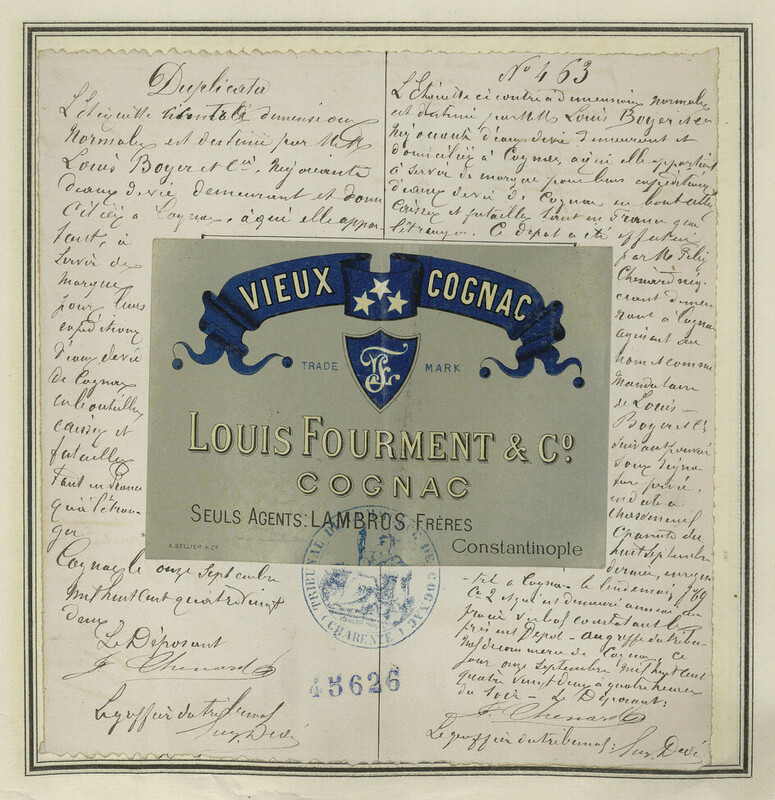 Duplicata
L'Etiquette dimensions
Normales est destiné par MM
Louis Boyer et Cie, Négociants
d'eaux de vie demeurant et domi
ciliés à Cognac, à qui elle appar
tient, à
servir de
marque
pour leurs
expéditions
d'eaux de vie
de Cognac
en bouteilles
caisses et
futailles
tant en France
qu'à l'étran-
ger
Cognac le onze Septembre
mil huit cent quatre vingt
deux
Le Déposant
F. Chenard
Le greffier du tribunal
No 463
L'Etiquette ci contre à dimensions normales
est destiné par MM Louis Boyer et Cie
Négociants d'eaux de vie demeurant et
domiciliés à Cognac, à qui elle appartient
à servir de marque pour leurs expéditions
d'eaux de vie de Cognac en bouteilles
caisses et futailles tant en France qu'à
l'étranger. Ce dépot a été effectué
par Mr
Chenard nég-
ociant demeu-
rant à Cognac
agissant au
nom et comme
Mandataire
de Louis
Boyer et Cie
suivant pouvoir
sous signa
ture privée,
en date à
Charente du
huit septembre
dernier, enregis-
tré à Cognac le lendemain,
Ce 2 est demeuré annexé au
procès verbal constatant le
présent Dépot - au greffe du tribu-
nal de commerce de Cognac, ce
jour onze septembre mil huit cent
quatre vingt deux à quatre heures
du soir - Le Déposant:
F. Chenard
Le greffier du tribunal:
VIEUX COGNAC
TRADE MARK
LOUIS FOURMENT & Co.
COGNAC
SEULS AGENTS: LAMBROS FRÈRES
A. BELLIER & Co.
Constantinople
TRIBUNAL DE COMMERCE DE COGNAC
(CHARENTE)
45626